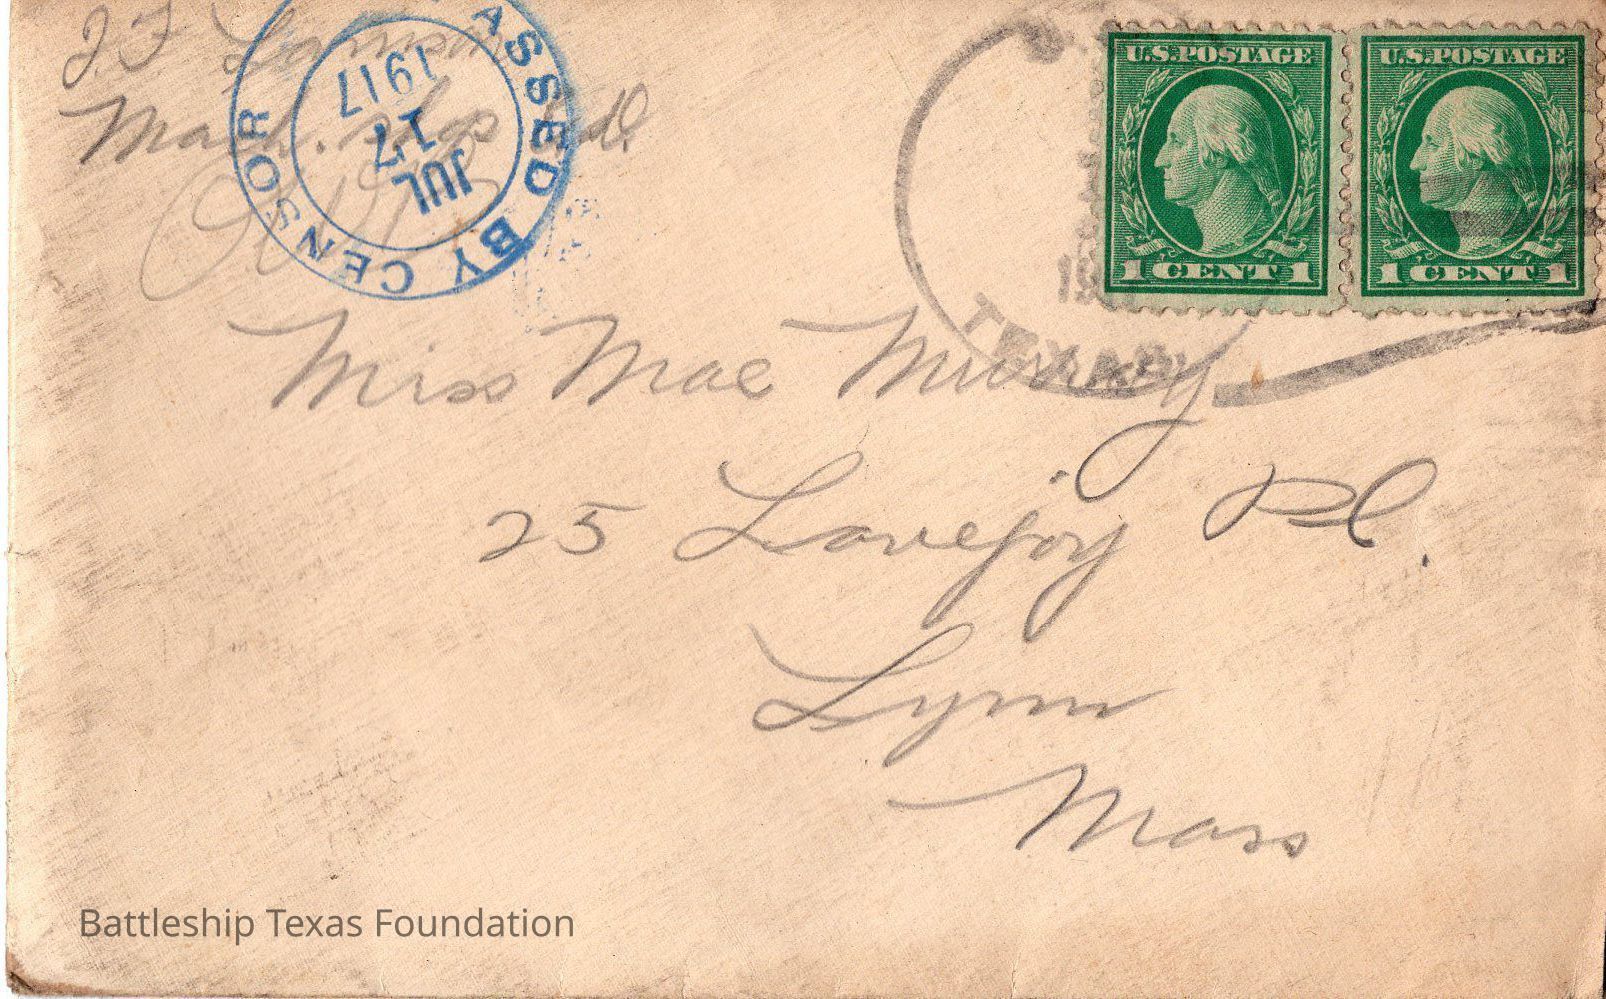 J. F.
Mach. shop
PASSED BY CENSOR
JUL
17
1917
TEXAS
U.S. POSTAGE
1 CENT 1
U.S. POSTAGE
1 CENT 1
Miss Mae Murray
25 Lovejoy Pl.
Lynn
Mass
Battleship Texas Foundation